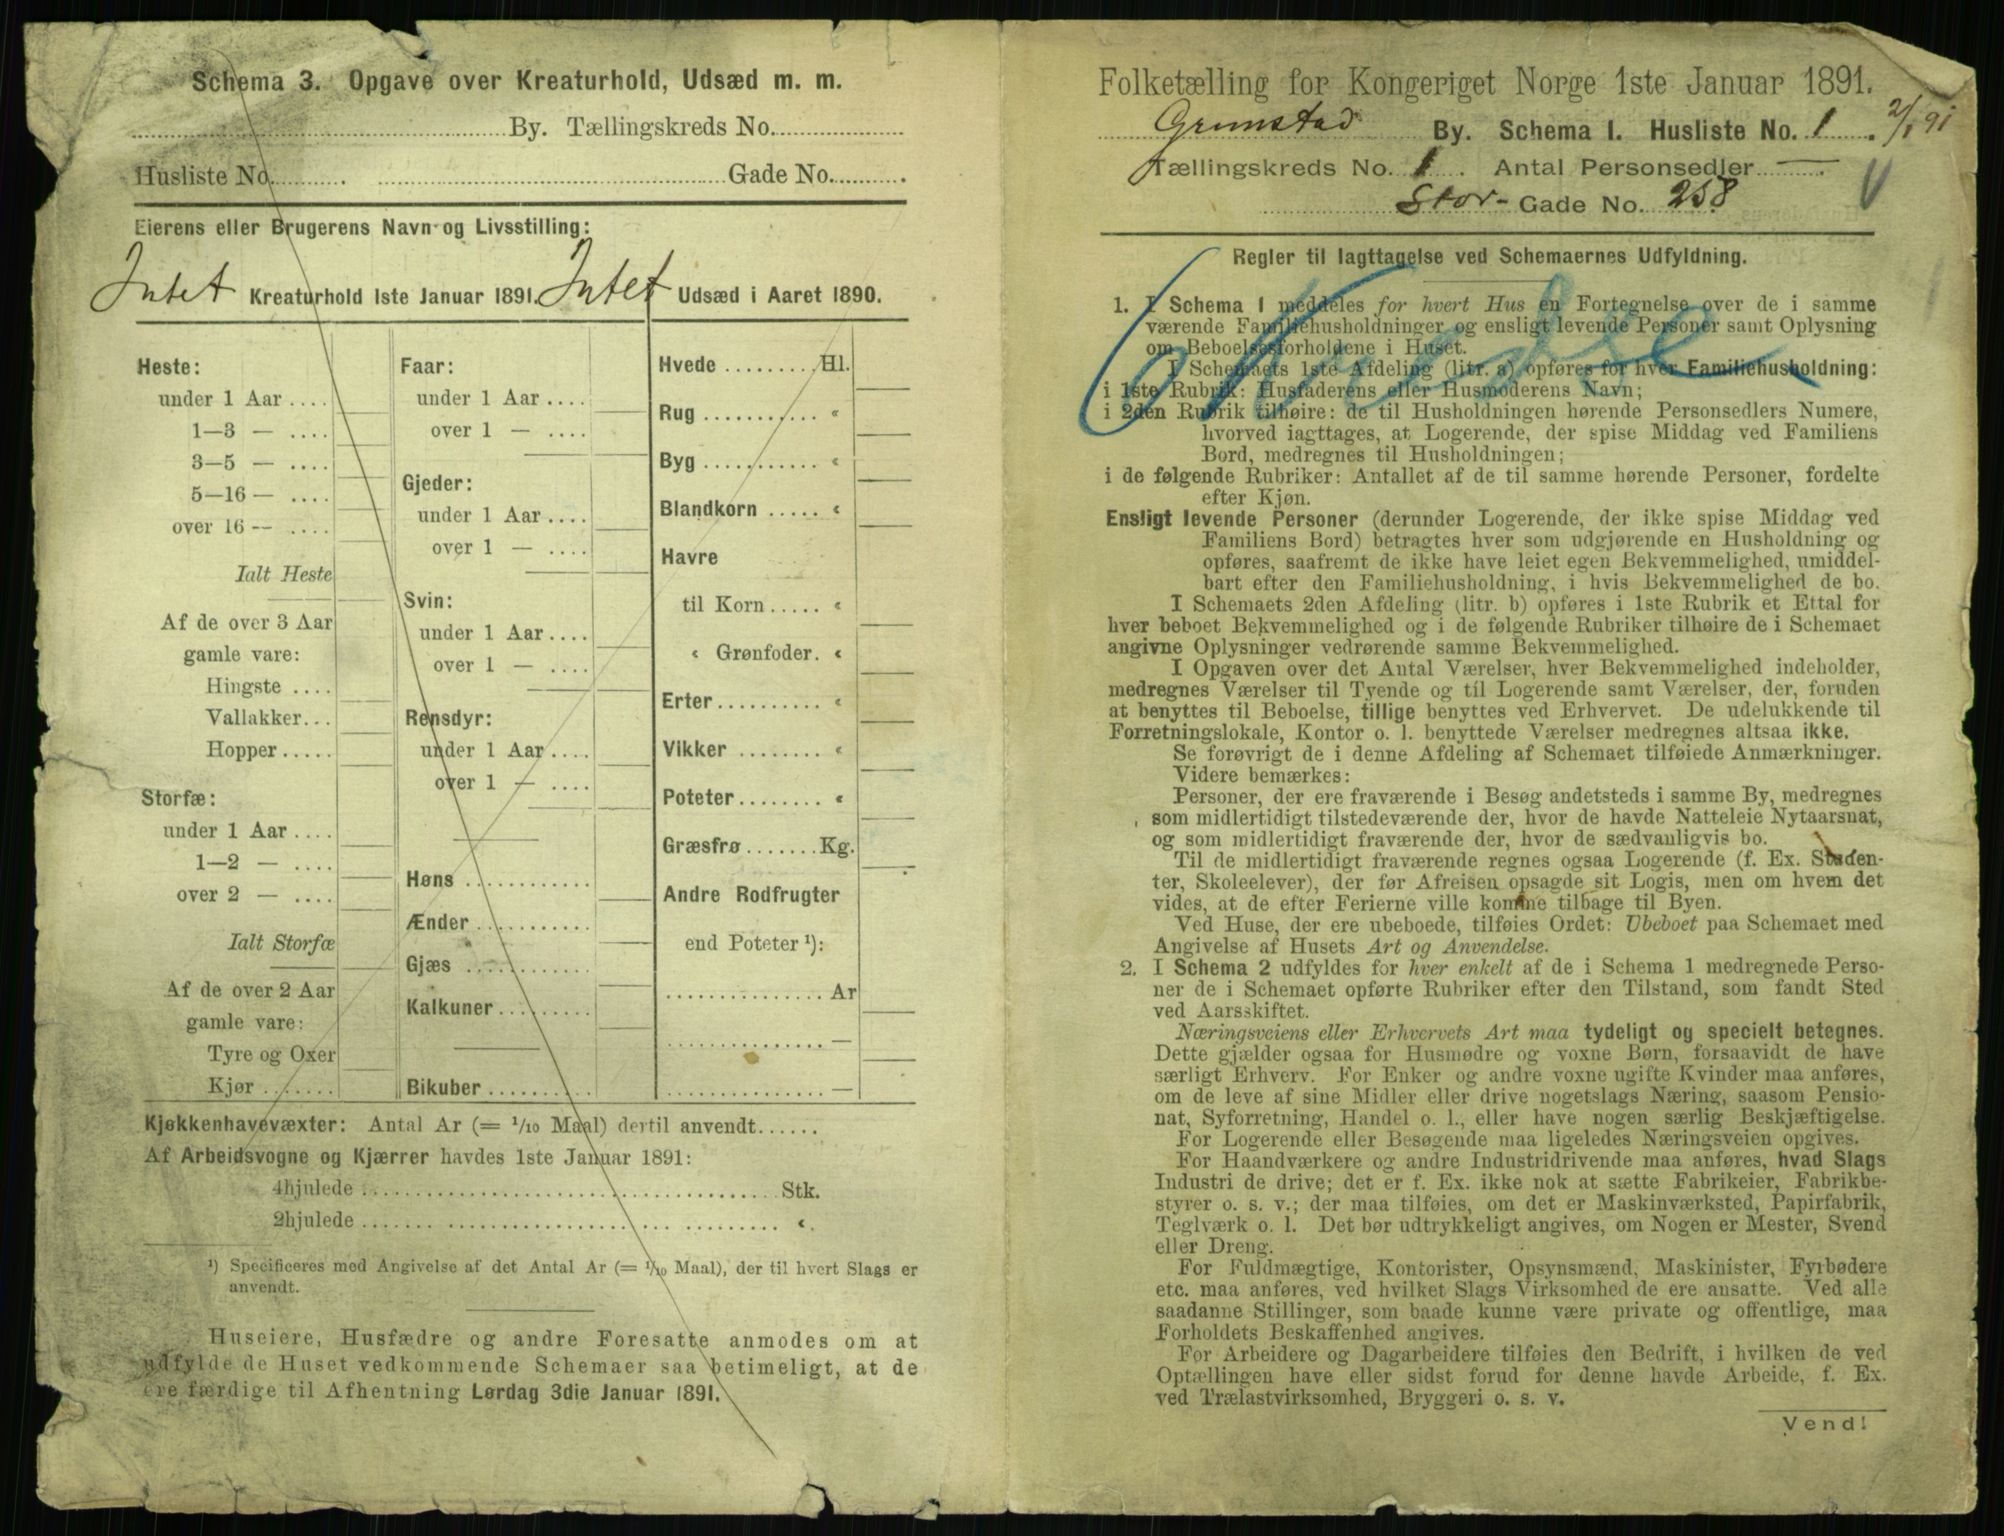 Schema 3. Opgave over Kreaturhold, Udsæd m. m.
By. Tællingskreds No.
Husliste No. Gade No.
Eierens eller Brugerens Navn og Livsstilling:
Intet Kreaturhold 1ste Januar 1891. Intet Udsæd i Aaret 1890.
Heste:
under 1 Aar ....
1—3 — ....
3—5 — ....
5—16 — ....
over 16 — ....
Ialt Heste
Af de over 3 Aar
gamle vare:
Hingste ....
Vallakker...
Hopper .....
Storfæ:
under 1 Aar ....
1—2 — ....
over 2 — ....
Ialt Storfæ
Af de over 2 Aar
gamle vare:
Tyre og Oxer
Kjør ........
Faar:
under 1 Aar ....
over 1 — ....
Gjeder:
under 1 Aar ....
over 1 — ....
Svin:
under 1 Aar ....
over 1 — ....
Rensdyr:
under 1 Aar ....
over 1 — ....
Høns ............
Ænder ...........
Gjæs ............
Kalkuner .........
Bikuber ..........
Hvede ......... Hl.
Rug ........... «
Byg ........... «
Blandkorn ..... «
Havre
til Korn ..... «
« Grønfoder. «
Erter .......... «
Vikker ......... «
Poteter ........ «
Græsfrø ....... Kg.
Andre Rodfrugter
end Poteter ¹):
............... Ar
............... —
............... —
Kjøkkenhavevæxter: Antal Ar (= 1/10 Maal) dertil anvendt......
Af Arbeidsvogne og Kjærrer havdes 1ste Januar 1891:
4hjulede ........................................ Stk.
2hjulede ........................................ «.
¹) Specificeres med Angivelse af det Antal Ar (= 1/10 Maal), der til hvert Slags er
anvendt.
Huseiere, Husfædre og andre Foresatte anmodes om at
udfylde de Huset vedkommende Schemaer saa betimeligt, at de
ere færdige til Afhentning Lørdag 3die Januar 1891.
Folketælling for Kongeriget Norge 1ste Januar 1891.
Grimstad By. Schema 1. Husliste No. 1. 2/1 91
Tællingskreds No. 1. Antal Personsedler — .
Stor- Gade No. 258
Regler til Iagttagelse ved Schemaernes Udfyldning.
1. I Schema 1 meddeles for hvert Hus en Fortegnelse over de i samme
værende Familiehusholdninger og ensligt levende Personer samt Oplysning
om Beboelsesforholdene i Huset.
I Schemaets 1ste Afdeling (litr. a) opføres for hver Familiehusholdning:
i 1ste Rubrik: Husfaderens eller Husmoderens Navn;
i 2den Rubrik tilhøire: de til Husholdningen hørende Personsedlers Numere,
hvorved iagttages, at Logerende, der spise Middag ved Familiens
Bord, medregnes til Husholdningen;
i de følgende Rubriker: Antallet af de til samme hørende Personer, fordelte
efter Kjøn.
Ensligt levende Personer (derunder Logerende, der ikke spise Middag ved
Familiens Bord) betragtes hver som udgjørende en Husholdning og
opføres, saafremt de ikke have leiet egen Bekvemmelighed, umiddel-
bart efter den Familiehusholdning, i hvis Bekvemmelighed de bo.
I Schemaets 2den Afdeling (litr. b) opføres i 1ste Rubrik et Ettal for
hver beboet Bekvemmelighed og i de følgende Rubriker tilhøire de i Schemaet
angivne Oplysninger vedrørende samme Bekvemmelighed.
I Opgaven over det Antal Værelser, hver Bekvemmelighed indeholder,
medregnes Værelser til Tyende og til Logerende samt Værelser, der, foruden
at benyttes til Beboelse, tillige benyttes ved Erhvervet. De udelukkende til
Forretningslokale, Kontor o. l. benyttede Værelser medregnes altsaa ikke.
Se forøvrigt de i denne Afdeling af Schemaet tilføiede Anmærkninger.
Videre bemærkes:
Personer, der ere fraværende i Besøg andetsteds i samme By, medregnes
som midlertidigt tilstedeværende der, hvor de havde Natteleie Nytaarsnat,
og som midlertidigt fraværende der, hvor de sædvanligvis bo.
Til de midlertidigt fraværende regnes ogsaa Logerende (f. Ex. Studen-
ter, Skoleelever), der før Afreisen opsagde sit Logis, men om hvem det
vides, at de efter Ferierne ville komme tilbage til Byen.
Ved Huse, der ere ubeboede, tilføies Ordet: Ubeboet paa Schemaet med
Angivelse af Husets Art og Anvendelse.
2. I Schema 2 udfyldes for hver enkelt af de i Schema 1 medregnede Perso-
ner de i Schemaet opførte Rubriker efter den Tilstand, som fandt Sted
ved Aarsskiftet.
Næringsveiens eller Erhvervets Art maa tydeligt og specielt betegnes.
Dette gjælder ogsaa for Husmødre og voxne Børn, forsaavidt de have
særligt Erhverv. For Enker og andre voxne ugifte Kvinder maa anføres,
om de leve af sine Midler eller drive nogetslags Næring, saasom Pensio-
nat, Syforretning, Handel o. l., eller have nogen særlig Beskjæftigelse.
For Logerende eller Besøgende maa ligeledes Næringsveien opgives.
For Haandværkere og andre Industridrivende maa anføres, hvad Slags
Industri de drive; det er f. Ex. ikke nok at sætte Fabrikeier, Fabrikbe-
styrer o. s. v.; der maa tilføies, om det er Maskinværksted, Papirfabrik,
Teglværk o. l. Det bør udtrykkeligt angives, om Nogen er Mester, Svend
eller Dreng.
For Fuldmægtige, Kontorister, Opsynsmænd, Maskinister, Fyrbødere
etc. maa anføres, ved hvilket Slags Virksomhed de ere ansatte. Ved alle
saadanne Stillinger, som baade kunne være private og offentlige, maa
Forholdets Beskaffenhed angives.
For Arbeidere og Dagarbeidere tilføies den Bedrift, i hvilken de ved
Optællingen have eller sidst forud for denne havde Arbeide, f. Ex.
ved Trælastvirksomhed, Bryggeri o. s. v.
Vend!